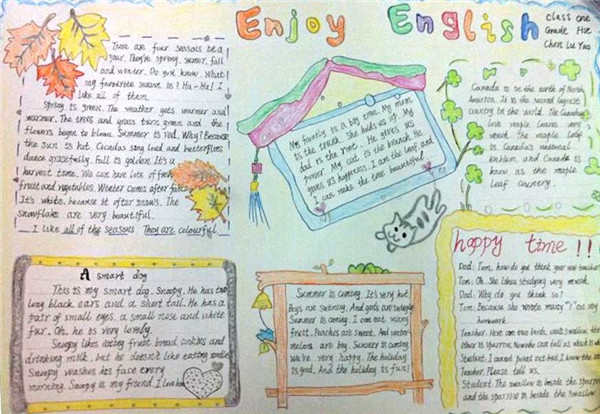 Enjoy English
Class one
Grade
Chen Lu Yao
There are four seasons be a
year. They're spring, summer, fall
and winter. Do you know What
my favourite season is? Ha-Ha! I
like all of them.
Spring is green. The weather gets warmer and
warmer. The trees and grass turns green and the
flowers begin to bloom. Summer is red. Why? Because
the sun is hot. Cicadas sing loud and butterflies
dance gracefully. Fall is golden. It's a
harvest time. We can have lots of fresh
fruit and vegetables. Winter comes after fall
It's white, because it often snows. The
snowflake are very beautiful.
I like all of the seasons They are colourful.
My family is a big tree. My mum
is the trunk. She holds us up. My
dad is the root. He gives us
power. My sister is the branch. He
gives us happiness. I am the leaf and
I can make the tree beautiful!
Canada is in the north of North
America. It is the second largest
country in the world. The Canadian
maple leaves very
much the maple leaf
is Canada's national
emblem and Canada is
know as the maple
leaf country.
A smart dog
This is my smart dog. Snoopy. He has two
long black ears and a short tail. He has a
pair of small eyes, a small nose and white
fur. Oh, he is very lovely.
Snoopy likes eating fruit bread, cookies and
drinking milk, but he doesn't like eating
Snoopy washes his face every
morning. Snoopy is my friend. I love him
Summer is coming. It's very hot.
Boys are swimming. And girls are
Summer is coming. I can eat many
fruit. Peaches are sweet. And water-
melons are big. Summer is coming
We're very happy. The holiday
is good. And the holiday is fun!
happy time!!!
Dad: Tom, how do you think your new teacher
Tom: Oh. She likes studying very much.
Dad: Why do you think so?
Tom: Because she wrote many "x" on my
homework.
Teacher: Here are two birds, one's swallow, the
other is sparrow. Now who can tell us which is
Student: I cannot point out but I know the
Teacher: Please tell us.
Student: The swallow is beside the sparrow
and the sparrow is beside the swallow.